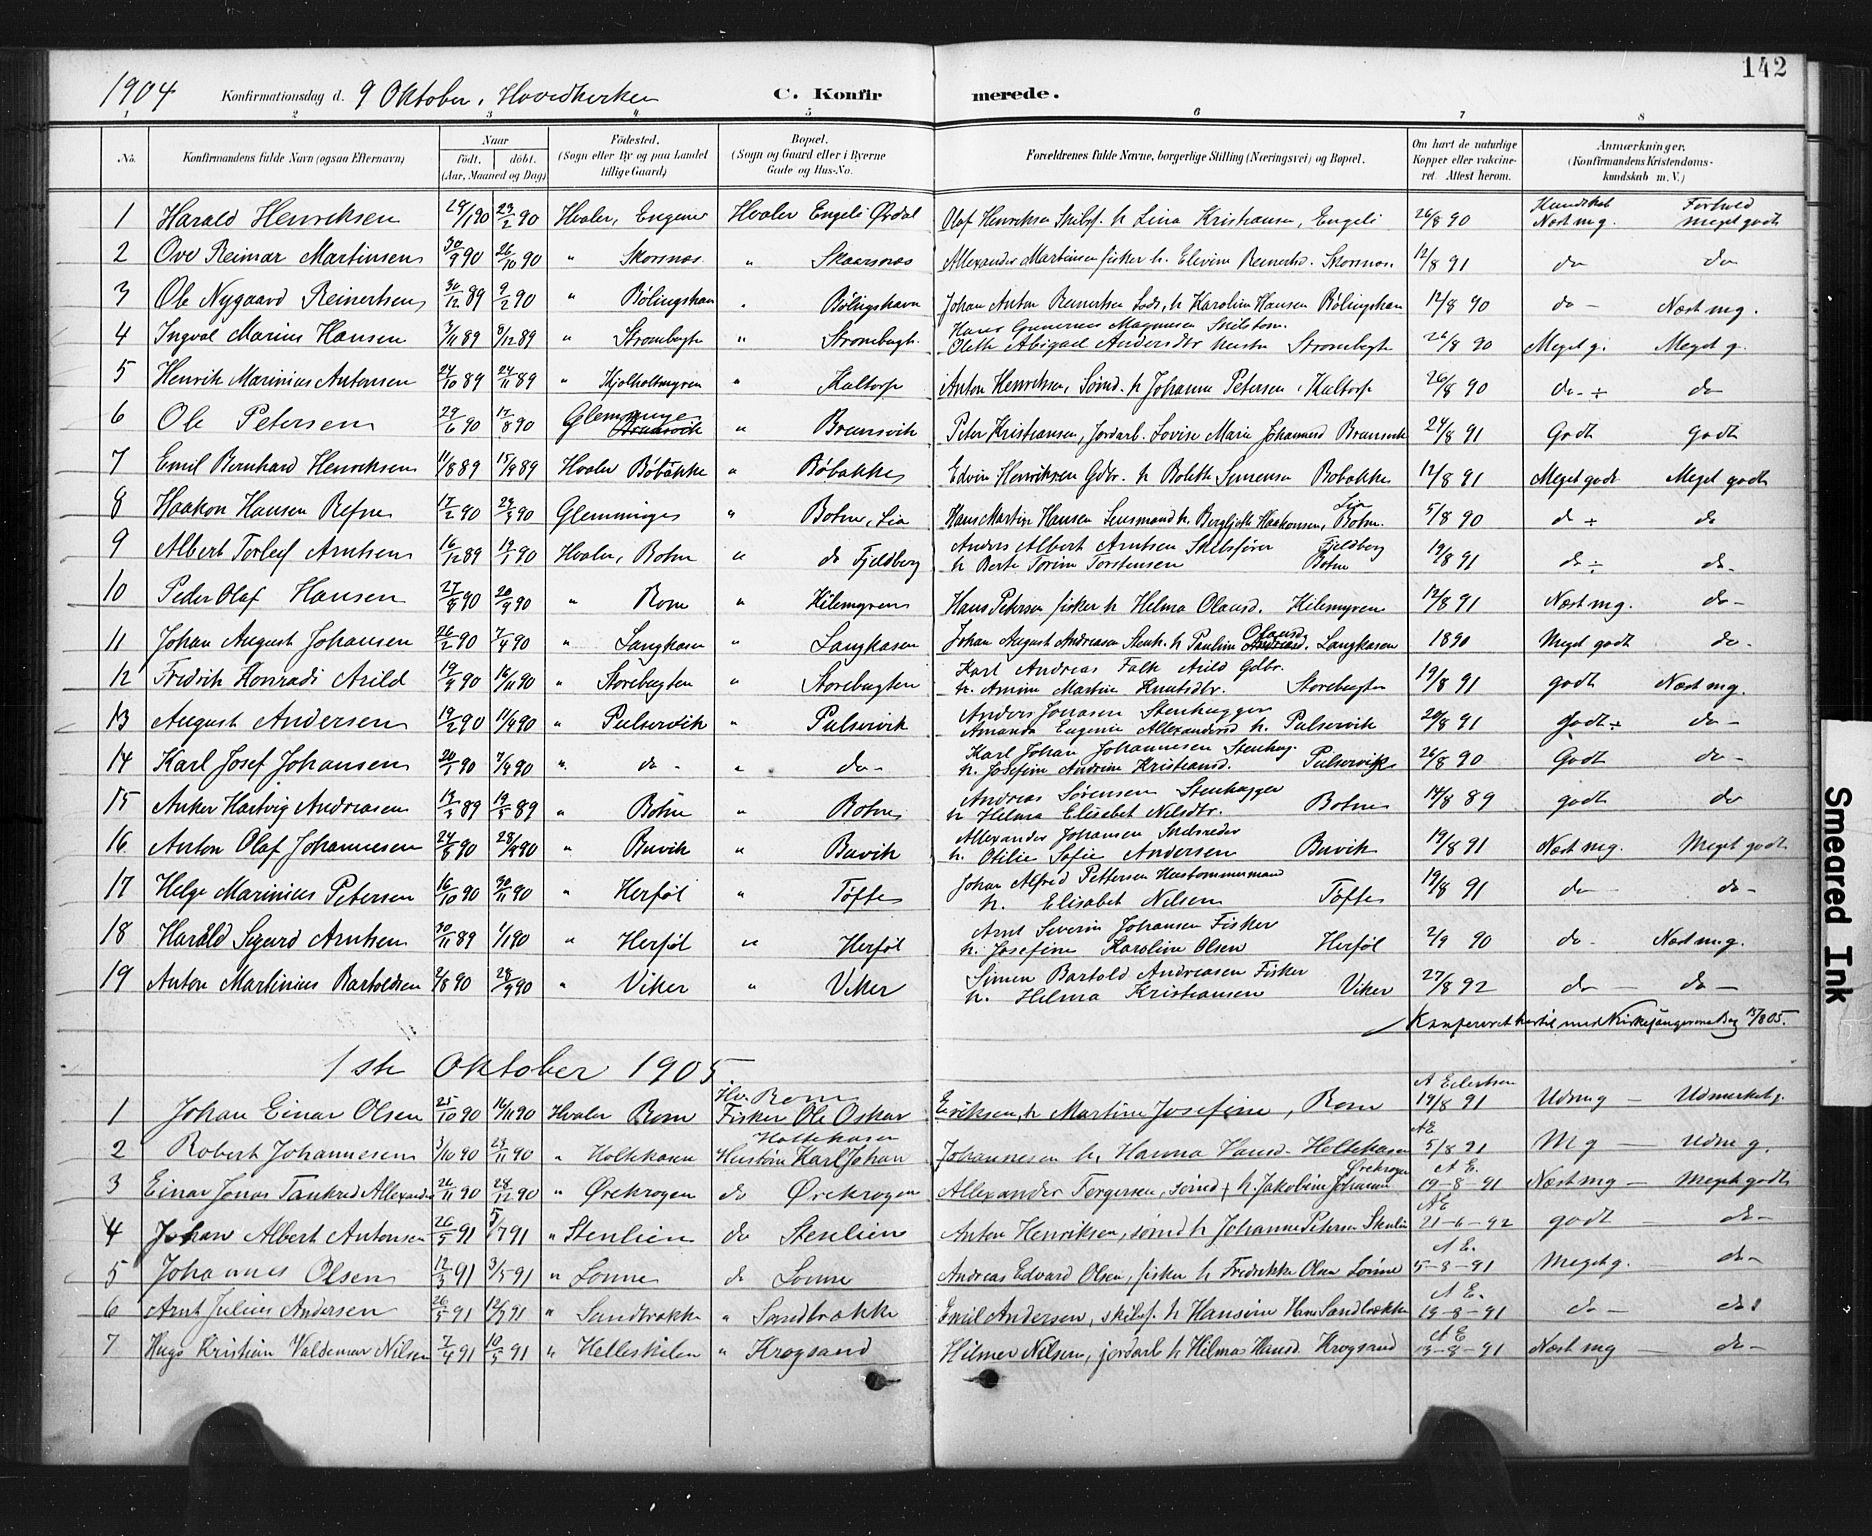 142
1904 Konfirmationsdag d. 9 Oktober, Hovedkirken C. Konfirmerede.
1 2 3 4 5 6 7 8
No. Konfirmandens fulde Navn (ogsaa Efternavn) Naar født. døbt. (Aar, Maaned og Dag) Fødested. (Sogn eller By og paa Landet tillige Gaard) Bopæl. (Sogn og Gaard eller i Byerne Gade og Hus-No. Forældrenes fulde Navne, borgerlige Stilling (Næringsvei) og Bopæl. Om havt de naturlige Kopper eller vaccineret. Attest herom. Anmerkninger. (Konfirmandens Kristendomskundskab m. V.)
Kundskab Forhold
1 Harald Henriksen 29/1 90 23/2 90 Hvaler, Engene Hvaler Engeli Ørdal Olaf Henriksen Skibsf. h Lina Kristiansen, Engeli 26/8 90 Næst mg. Meget godt
2 Ove Reimar Martinsen 30/9 90 26/10 90 " Skorsnæs " Skaarsnæs Allexander Martinsen fisker h. Elevine Reinertsd. Skorsnæs 12/8 91 do do
3 Ole Nygaard Reinertsen 30/12 89 9/2 90 " Bølingshavn " Bølingshavn Johan Anton Reinertsen Lods, h Karoline Hansen Bølingshavn 12/8 90 do - Næst mg.
4 Ingval Marius Hansen 3/11 89 8/12 89 " Strømbugte " Strømbugt. Hans Gunerius Magnusen Skilstøm. Olette Abigael Andersdtr hustru Strømbugte 26/8 90 Meget g. Meget g.
5 Henrik Marinius Antonsen 24/10 89 24/11 89 " Kjølholtmyren " Kaltorp Anton Henriksen, Sømd. h Johanne Petersen, Kaltorp 26/8 90 do ÷ do
6 Ole Petersen 29/6 90 17/8 90 Glemminge " Brunsvik Peter Kristiansen, Jordarb. Lovise Marie Johannesd Brunsvik 24/8 91 Godt Godt
7 Emil Bernhard Henriksen 11/8 89 15/9 89 Hvaler Bøbakke " Bøbakke Edvin Henriksen Gdbr. h Bolette Simensen Bobakke 12/8 91 Meget godt Meget godt
8 Haakon Hansen Refne 17/2 90 23/3 90 Glemminge " Botne, Lia Hans Martin Hansen Lensmand h Bergljotte Haakonsen, Lia Botne. 5/8 90 do ÷ do
9 Albert Torleif Arntsen 16/12 89 19/1 90 Hvaler, Botne " do Fjeldberg Anders Albert Arntsen Skibsfører Fjeldberg
h Berte Torine Torstensen Botne 19/8 91 do ÷ do-
10 Peder Olaf Hansen 27/8 90 20/9 90 " Rom " Kilemyren Hans Petersen fisker h Helma Olausd. Kilemyren 12/8 91 Næst mg. do -
11 Johan August Johansen 26/2 90 7/4 90 " Langkasen " Langkasen Johan August Andreasen Stenh. h Pauline Olausd. Langkasen 1890 Meget godt do -
12 Fredrik Konradi Arild 19/9 90 16/11 90 " Storebugten " Storebugten Karl Andreas Falk Arild Gdbr.
h. Amine Martine Knutsdtr. Storebugten 19/8 91 godt Næst mg.
13 August Andersen 19/2 90 11/4 90 " Pulservik " Pulservik Anders Jonasen Stenhugger
Amanda Eugenie Allexandersd h. Pulservik 20/8 91 Godt ÷ do -
14 Karl Josef Johansen 20/1 90 7/4 90 " do - " do - Karl Johan Johannesen Stenhug.
h. Josefine Andrine Kristiansd. Pulservik 26/8 90 Godt do -
15 Anker Hartvig Andreasen 13/3 89 19/5 89 " Botne " Botne Andreas Sørensen Stenhugger
h Helma Elisabet Nilsdtr. Botne 14/8 89 godt do
16 Anton Olaf Johannesen 24/8 90 28/9 90 " Buvik " Buvik Allexander Johansen Skibsreder
h. Otilie Sofie Andersen Buvik 19/8 91 Næst mg. Meget godt
17 Helge Marinius Petersen 16/10 90 30/11 90 " Herføl " Tøfte Johan Alfred Pettersen Husbommermand
h. Elisabet Nilsen Tøfte 19/8 91 do - do -
18 Harald Sigurd Arntsen 30/11 89 1/1 90 " Herføl " Herføl Arnt Severin Johansen Fisker
h. Josefine Karoline Olsen Herføl 2/9 90 do - Næst mg.
19 Anton Martinius Bartoldsen 2/8 90 28/9 90 " Viker " Viker Simen Bartold Andreasen Fisker
h. Helma Kristiansen Viker 27/8 92 do - do -
Konfereret hertil med Kirkesangerens Bog 15/8 05.
1ste Oktober 1905
1 Johan Einar Olsen 25/10 90 16/11 90 Hvaler Rom Hv. Rom Fisker Ole Oskar Eriksen, h Martine Josefine, Rom A Eilertsen 19/8 91 Udm g - Udmerket g.
2 Robert Johannesen 3/10 90 23/11 90 " Holtekasen Holtekasen Hustøm Karl Johan Johannesen h. Hanna Hansd. Holtekasen AE 5/8 91 Mg - udm g.
3 Einar Jonas Tankred Allexander 21/11 90 28/12 90 " Ørekrogen do Ørekrogen Allexander Torgersen, sømd + h. Jakobine Johanne Ørekrogen A E. 19-8-91 Næst mg - Meget godt
4 Johan Albert Antonsen 26/5 91 5/7 91 " Stenlien do Stenlien Anton Henriksen, sømd h Johanne Petersen Stenlien AE 21-6-92 godt - do -
5 Johannes Olsen 12/3 91 3/5 91 " Lønne do Lønne Andreas Edvard Olsen, fisker h Fredrikke Olsen Lønne A E. 5-8-91 Meget g. do -
6 Arnt Julius Andersen 26/5 91 12/7 91 " Sandbrække " Sandbrække Emil Andersen, skibsf. h Hansine Hans Sandbrække A E. 19-8-91 do - do
7 Hugo Kristian Valdemar Nilsen 7/4 91 10/5 91 " Helleskilen " Krogsand Hilmer Nilsen, jordarb h Hilma Hansd. Krogsand A E 13-8-91 Næst mg - do -
Smeared Ink